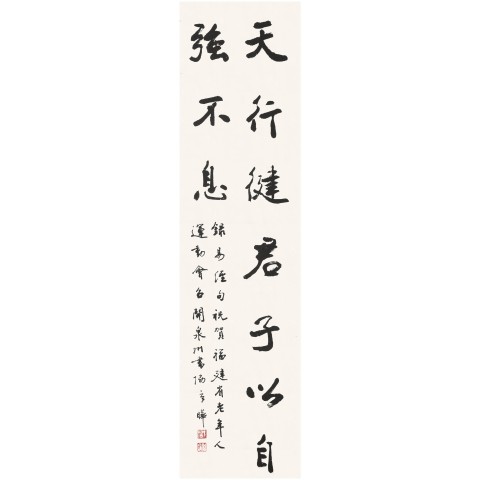 天行健君子以自
強不息
錄易經句祝賀福建省老年人
運動會召開泉州書